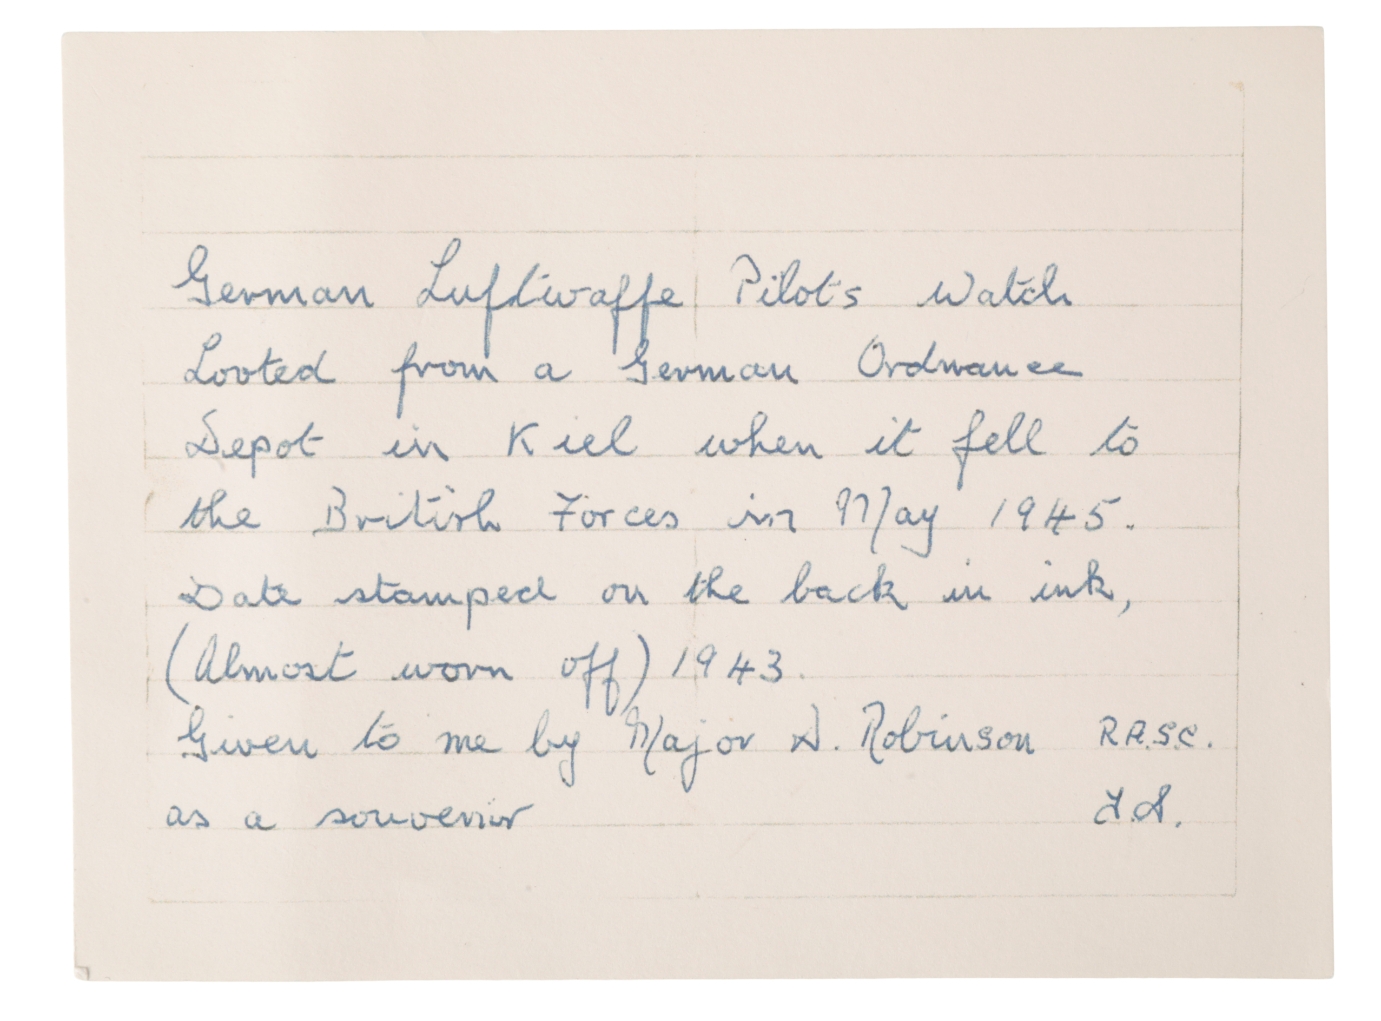 German Luftwaffe Pilots Watch
Looted from a German Ordnance
Depot in Kiel when it fell to
the British Forces in May 1945.
Date stamped on the back in ink,
(Almost worn off) 1943.
Given to me by Major D. Robinson R.A.S.C.
as a souvenir